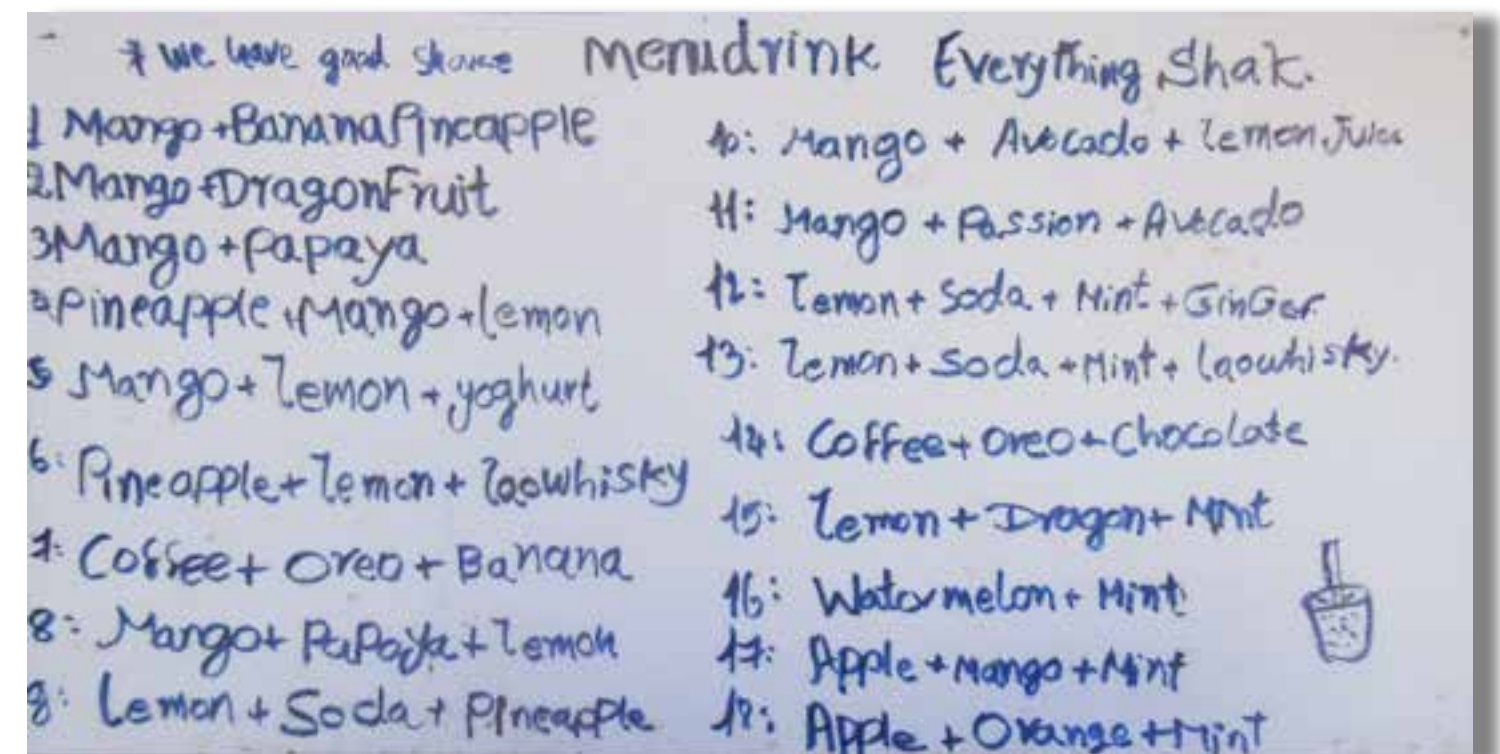 * we have good shake menudrink Everything Shak.
1 Mango+BananaPineapple
2 Mango+DragonFruit
3 Mango+Papaya
Pineapple+Mango+lemon
5 Mango+lemon+yoghurt
6: Pineapple+lemon+laowhisky
7: Coffee+oreo+Banana
8: Mango+PaPaya+lemon
9: lemon+Soda+PIneapple
10: Mango + Avocado + lemon Juice
11: Mango + Passion + Avocado
12: lemon + Soda + Mint + GinGer
13: lemon + Soda + Mint + laowhisky.
14: Coffee + oreo + Chocolate
15: lemon + Dragon + Mint
16: Watermelon + Mint
17: Apple + Mango + Mint
18: Apple + Orange + Mint